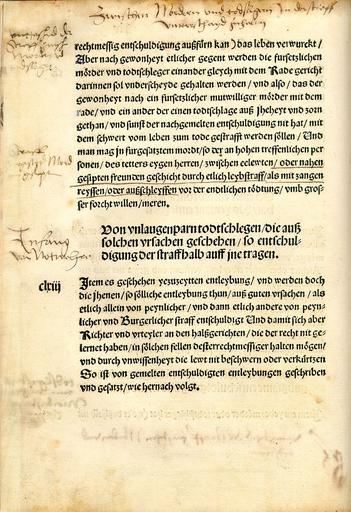 Zwischen Mördern und todtslegern In der straff
rechtmessig entschuldigung außfürn kan) das leben verwurckt /
Aber nach gewonheyt etlicher gegent werden die fursetzlichen
mörder vnd todtschleger einander gleych mit dem Rade gericht
darinnen sol vnderscheyde gehalten werden / vnd also / das der
gewonheyt nach ein fursetzlicher mutwilliger mörder mit dem
rade / vnd ein ander der einen todtschlage auß jheheyt vnd zorn
gethan / vnd sunst der nachgemelten entschuldigung nit hat / mit
dem schwert vom leben zum tode gestrafft werden söllen / Vnd
man mag jn fursgesatztem mordt / so der an hohen trefflichen per
sonen / des tetters eygen herren / zwischen eelewten / oder nahen
gesipten freunden geschicht durch etlich leybstraff / als mit zangen
reyssen / oder außschleyffen vor der entlichen tödtung / vmb gröſ-
ser forcht willen / meren.
Anfang
Von vnlaugenparn todtschlegen / die auß
solchen vrsachen geschehen / so entschul-
digung der straff halb auff jne tragen.
clxiij
Jtem es geschehen yezuzeytten entleybung / vnd werden doch
die jhenen / so sölliche entleybung thun / auß guten vrsachen / als
etlich allein von peynlicher / vnd dann etlich andere von peyn-
licher vnd Burgerlicher straff entschuldigt Vnd damit sich aber
Richter vnd vrteyler an den halßgerichten / die der recht nit ge-
lernet haben / in sölichen fellen desterrechtmessiger halten mögen /
vnd durch vnwissenheyt die lewt nit beschwern oder verkürtzen
So ist von gemelten entschuldigten entleybungen geschriben
vnd gesatzt / wie hernach volgt.